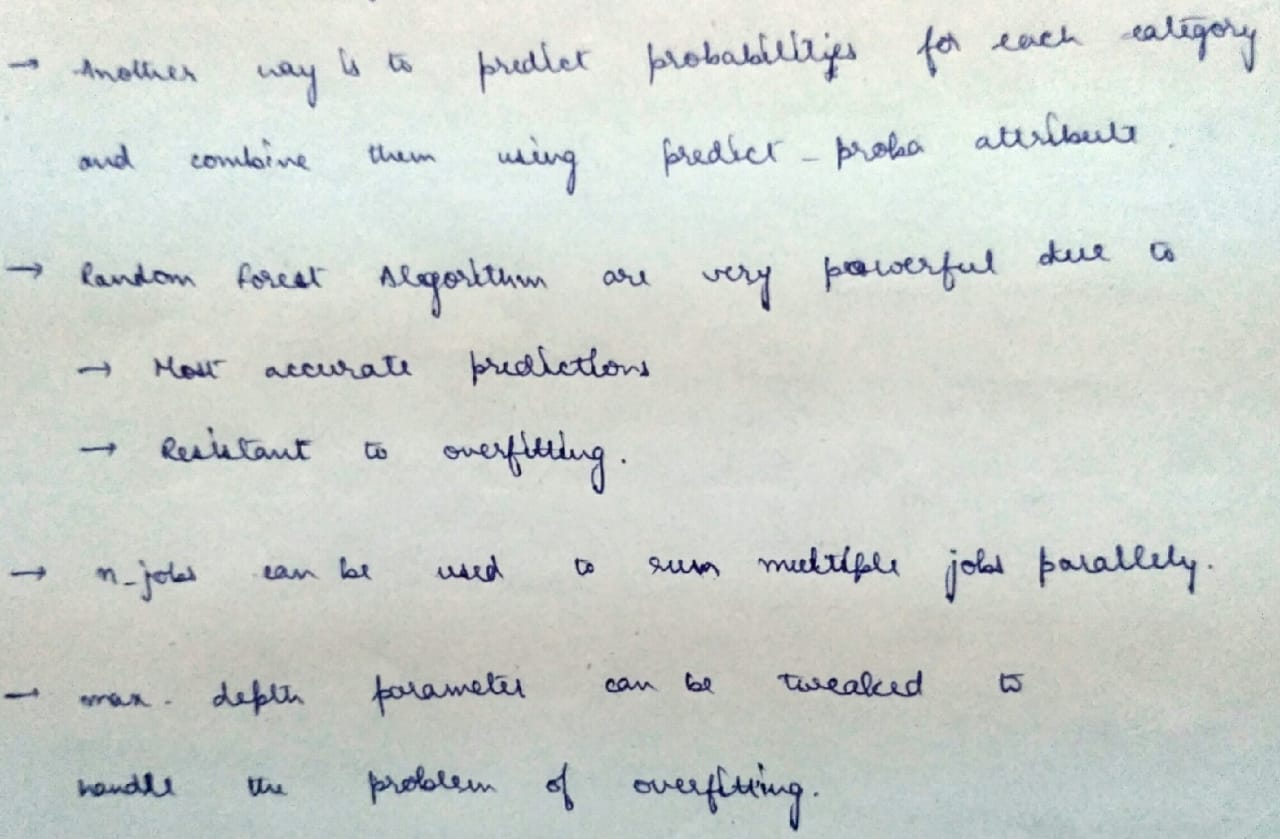 → Another way is to predict probabilities for each category
and combine them using predict _ proba attribute.
→ Random Forest Algorithm are very powerful due to
→ Most accurate predictions
→ Resistant to overfitting.
→ n_jobs can be used to run multiple jobs parallely.
→ max - depth parameter can be tweaked to
handle the problem of overfitting.